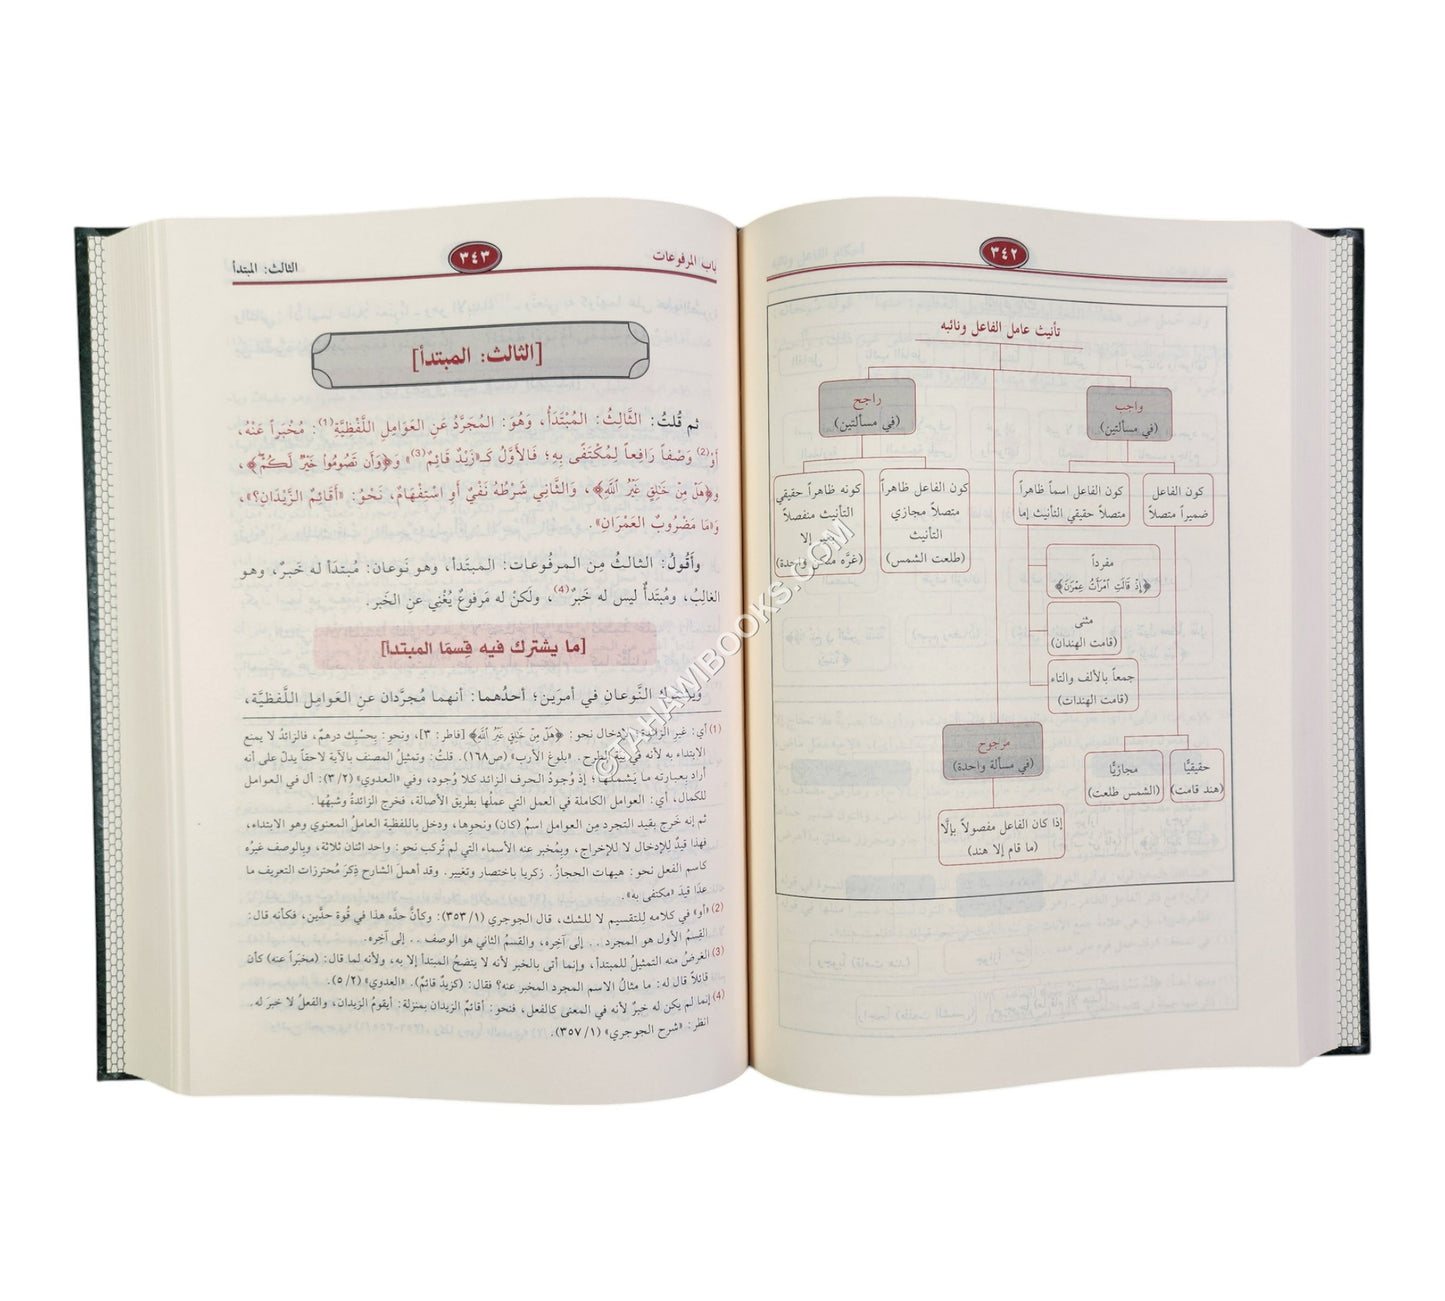 ٣٤٢
تأنيث عامل الفاعل ونائبه
واجب
(في مسألتين)
راجح
(في مسألتين)
كون الفاعل
ضميراً متصلاً
كون الفاعل اسماً ظاهراً
متصلاً حقيقي التأنيث إما
كون الفاعل ظاهراً
متصلاً مجازي
التأنيث
(طلعت الشمس)
كونه ظاهراً حقيقي
التأنيث منفصلاً
إلا
(غرَّه منكن واحدة)
مفرداً
﴿إِذْ قَالَتِ ٱمْرَأَتُ عِمْرَٰنَ﴾
مثنى
(قامت الهندان)
جمعاً بالألف والتاء
(قامت الهندات)
مرجوح
(في مسألة واحدة)
حقيقيًّا
(هند قامت)
مجازيًّا
(الشمس طلعت)
إذا كان الفاعل مفصولاً بإلَّا
(ما قام إلا هند)
باب المرفوعات
٣٤٣
الثالث: المبتدأ
[الثالث: المبتدأ]
ثم قُلتُ: الثَّالِثُ: المُبْتَدَأُ، وَهُوَ: المُجَرَّدُ عَنِ العَوَامِلِ اللَّفْظِيَّةِ(1): مُخْبَراً عَنْهُ،
أَوْ(2) وَصْفاً رَافِعاً لِمُكْتَفًى بِهِ؛ فَالأَوَّلُ كَـ«زَيْدٌ قَائِمٌ(3)» وَ﴿وَأَن تَصُومُوا۟ خَيْرٌ لَّكُمْ﴾،
و﴿هَلْ مِنْ خَٰلِقٍ غَيْرُ ٱللَّهِ﴾، وَالثَّانِي شَرْطُهُ نَفْيٌ أَوِ اسْتِفْهَامٌ، نَحْوُ: «أَقَائِمٌ الزَّيْدَانِ؟»،
وَ«مَا مَضْرُوبٌ العَمْرَانِ».
وأَقُولُ: الثالثُ مِنَ المرفُوعات: المبتدَأ، وهو نَوعان: مُبتدَأ له خَبرٌ، وهو
الغالِبُ، ومُبتدَأٌ ليس له خَبرٌ(4)، ولَكنْ له مَرفوعٌ يُغْني عنِ الخَبرِ.
[ما يشترك فيه قِسمَا المبتدأ]
النَّوعانِ في أمرَين؛ أحدُهما: أنهما مُجرَّدان عنِ العَوامِل اللَّفظيَّة،
(1) أي: غير الزائدة؛ لإدخال نحو: ﴿هَلْ مِنْ خَٰلِقٍ غَيْرُ ٱللَّهِ﴾ [فاطر: ٣]، ونحو: بِحسْبِك درهمٌ، فالزائدُ لا يمنع
الابتداء به لأنه في نية الطرح. «بلوغ الأرب» (ص١٦٨). قلتُ: وتمثيلُ المصنف بالآية لاحقاً يدلّ على أنه
أراد بعبارته ما يَشملُها؛ إذ وُجودُ الحرف الزائد كلا وُجود، وفي «العدوي» (٢/ ٣): أل في العوامل
للكمال، أي: العوامل الكاملة في العمل التي عملُها بطريق الأصالة، فخرج الزائدةُ وشبهُها.
ثم إنه خَرج بقيد التجرد مِن العوامل اسمُ (كان) ونحوِها، ودخل باللفظية العاملُ المعنوي وهو الابتداء،
فهذا قيدٌ للإدخال لا للإخراج، وبمُخبر عنه الأسماء التي لم تُركب نحو: واحد اثنان ثلاثة، وبالوصف غيرُه
كاسم الفعل نحو: هيهات الحجازُ. زكريا باختصار وتغيير. وقد أهملَ الشارح ذِكرَ مُحترزات التعريف ما
عدَا قيدَ «مكتفى به».
(2) «أو» في كلامه للتقسيم لا للشك، قال الجوجري (١/ ٣٥٣): وكأنَّ حدَّه هذا في قُوة حدَّين، فكأنه قال:
القِسمُ الأول هو المجرد .. إلى آخِره، والقسمُ الثاني هو الوصف .. إلى آخِره.
(3) الغرضُ منه التمثيلُ للمبتدأ، وإنما أتى بالخبر لأنه لا يتضحُ المبتدأ إلا به، ولأنه لما قال: (مخبَراً عنه) كأن
قائلاً قال له: ما مثالُ الاسم المجرد المخبر عنه؟ فقال: (كزيدٌ قائمٌ). «العدوي» (٢/ ٥).
(4) إنما لم يكن له خبرٌ لأنه في المعنى كالفعل، فنحو: أقائمٌ الزيدان بمنزلة: أيقومُ الزيدان، والفعلُ لا خبرَ له.
انظر: «شرح الجوجري» (١/ ٣٥٧).
© TAHAWIBOOKS.COM